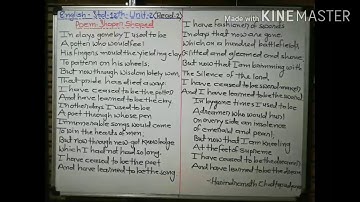 English- Std-12th- Unit-2 (Read-2)
Poem:- Shaper Shaped
In days gone by I used to be
A potter who would feel
His fingers mould the yielding clay
To patterns on his wheel;
But now through wisdom lately won,
That pride has died away,
I have ceased to be the potter
And have learned to be the clay.
In other days I used to be
A poet through whose pen
Innumerable songs would come
To win the hearts of men;
But now through new-got knowledge
Which I had not had so long,
I have ceased to be the poet
And have learned to be the song
I have fashioner of swords
In days that now are gone
Which on a hundred battlefields
Glitted and gleamed and shone
But now that I am brimming with
The silence of the land,
I have ceased to be sword-maker
And I have learned to be the sword.
In bygone times I used to be
A dreamer who would hurl
On every side an insolence
Of emerald and pearl;
But now that I am kneeling
At the feet of supreme
I have ceased to be the dreamer
And have learned to be the dream
- Harindranath Chattopadhyay
Made With KINEMASTER